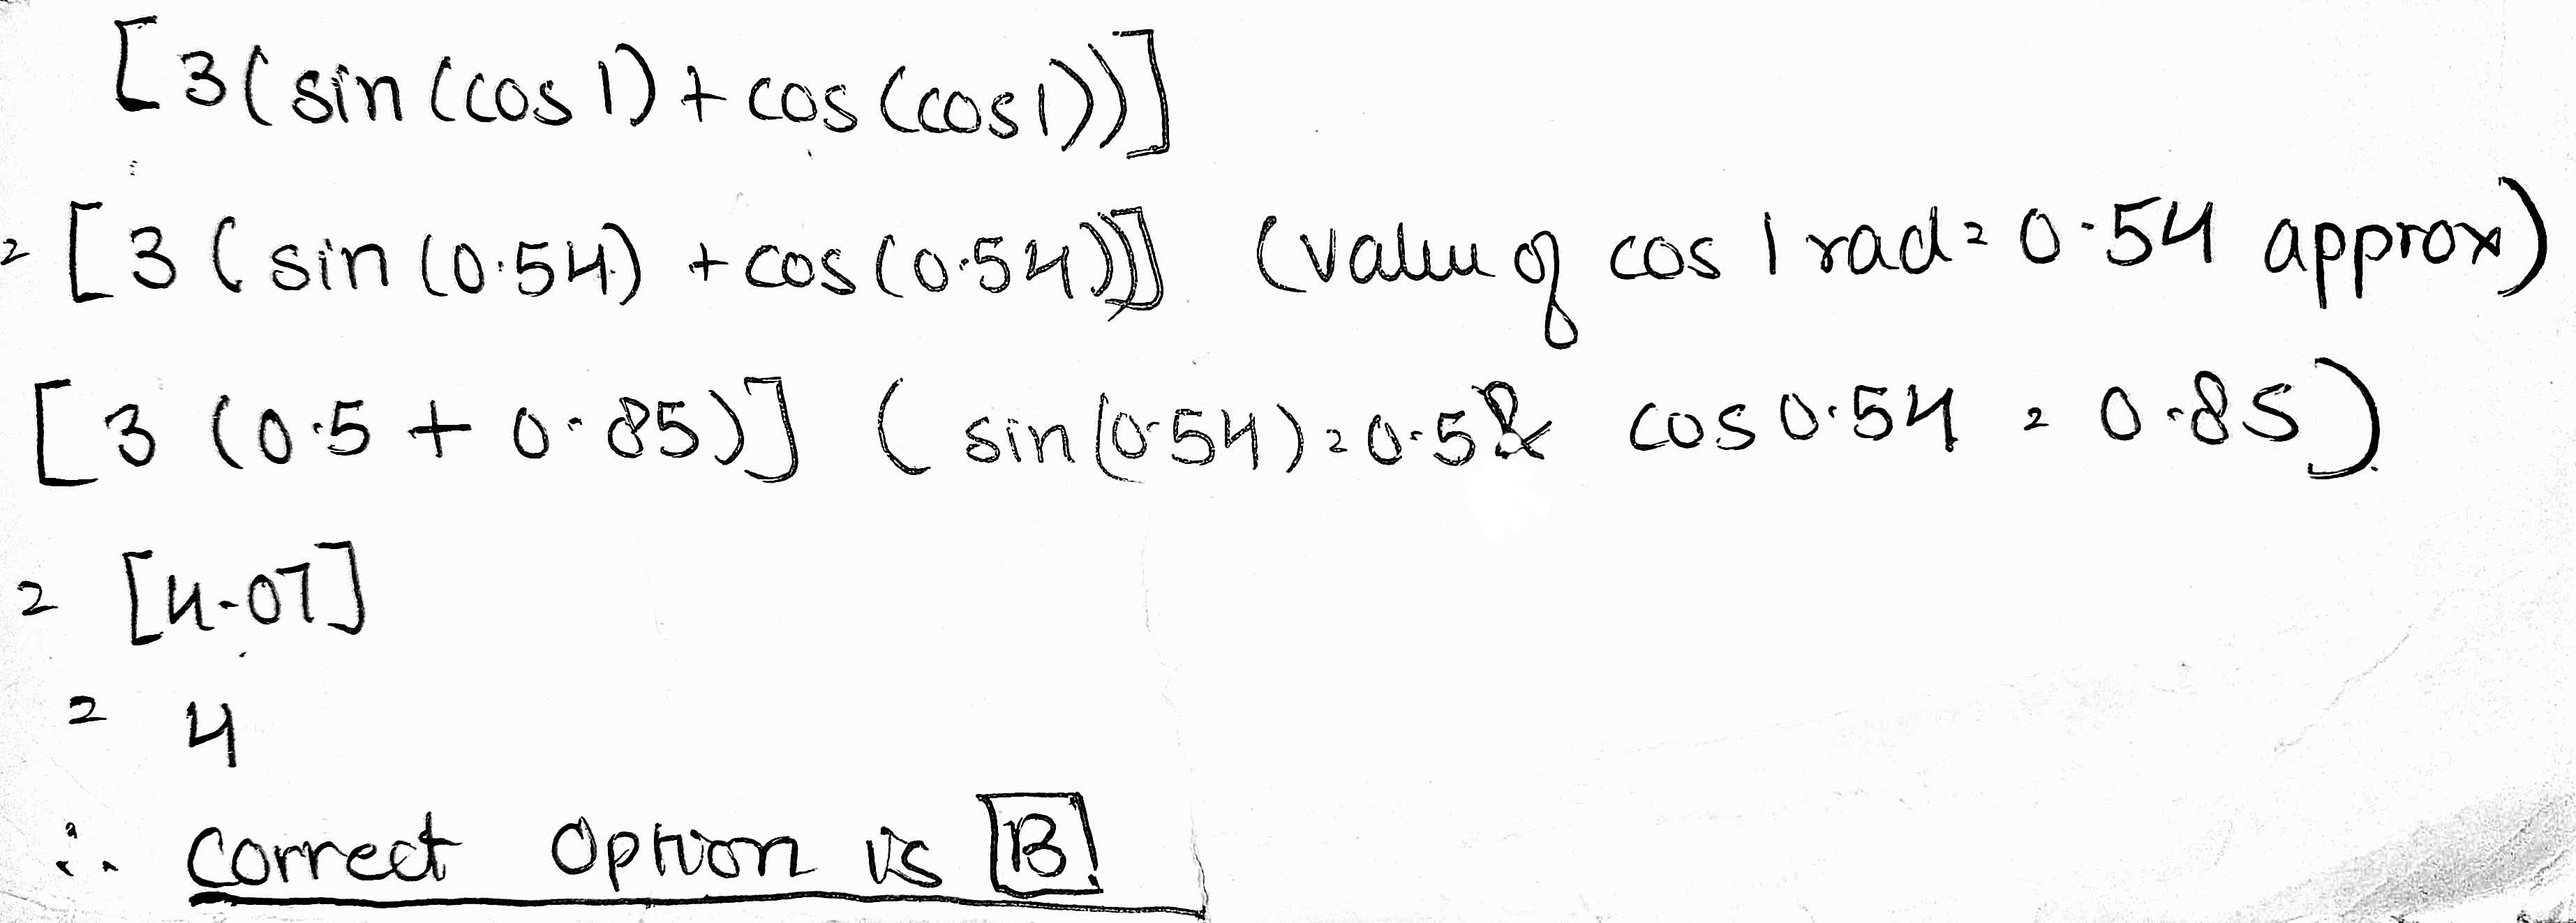 [3(sin(cos 1)+cos(cos1))]
= [3(sin(0.54)+cos(0.54))] (value of cos 1 rad = 0.54 approx)
[3(0.5+0.85)] (sin(0.54)=0.5 & cos 0.54 = 0.85)
= [4.07]
= 4
∴ correct option is B!